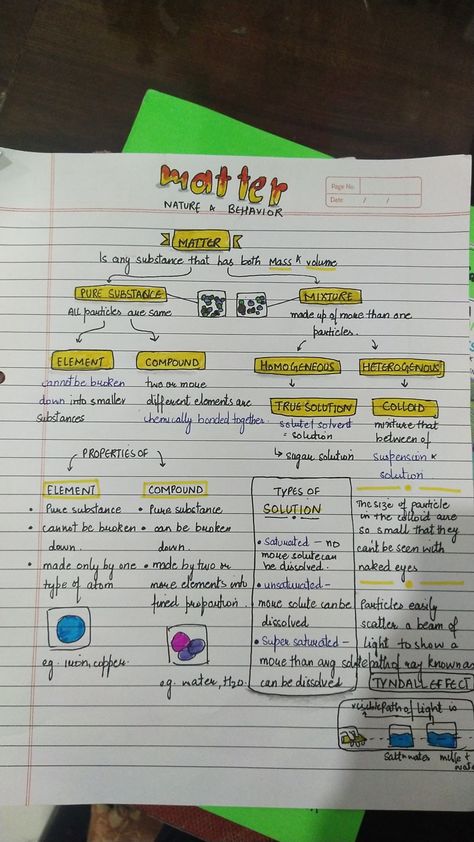 matter
NATURE & BEHAVIOR
Page No.
Date / /
MATTER
Is any substance that has both Mass & volume
PURE SUBSTANCE
All particles are same
MIXTURE
made up of more than one
particles.
ELEMENT
cannot be broken
down into smaller
substances
COMPOUND
two or more
different elements are
chemically bonded together.
HOMOGENEOUS
TRUE SOLUTION
solute + solvent
= solution
↳ sugar solution
HETEROGENOUS
COLLOID
mixture that
between of
suspension &
solution
PROPERTIES OF
ELEMENT
• Pure substance
• cannot be broken
down.
• made only by one
type of atom
eg. iron, copper.
COMPOUND
• Pure substance
• can be broken
down.
• made by two or
more elements into
fixed proportion.
eg. water, H2O.
TYPES OF
SOLUTION
• saturated – no
more solute can
be dissolved.
• unsaturated –
more solute can be
dissolved
• Super saturated –
more than avg solute
can be dissolved
The size of particle
in the colloid are
so small that they
can't be seen with
naked eyes.
Particles easily
scatter a beam of
light to show a
path of ray known as
TYNDALL EFFECT
visible path of light is
salt + water
milk +